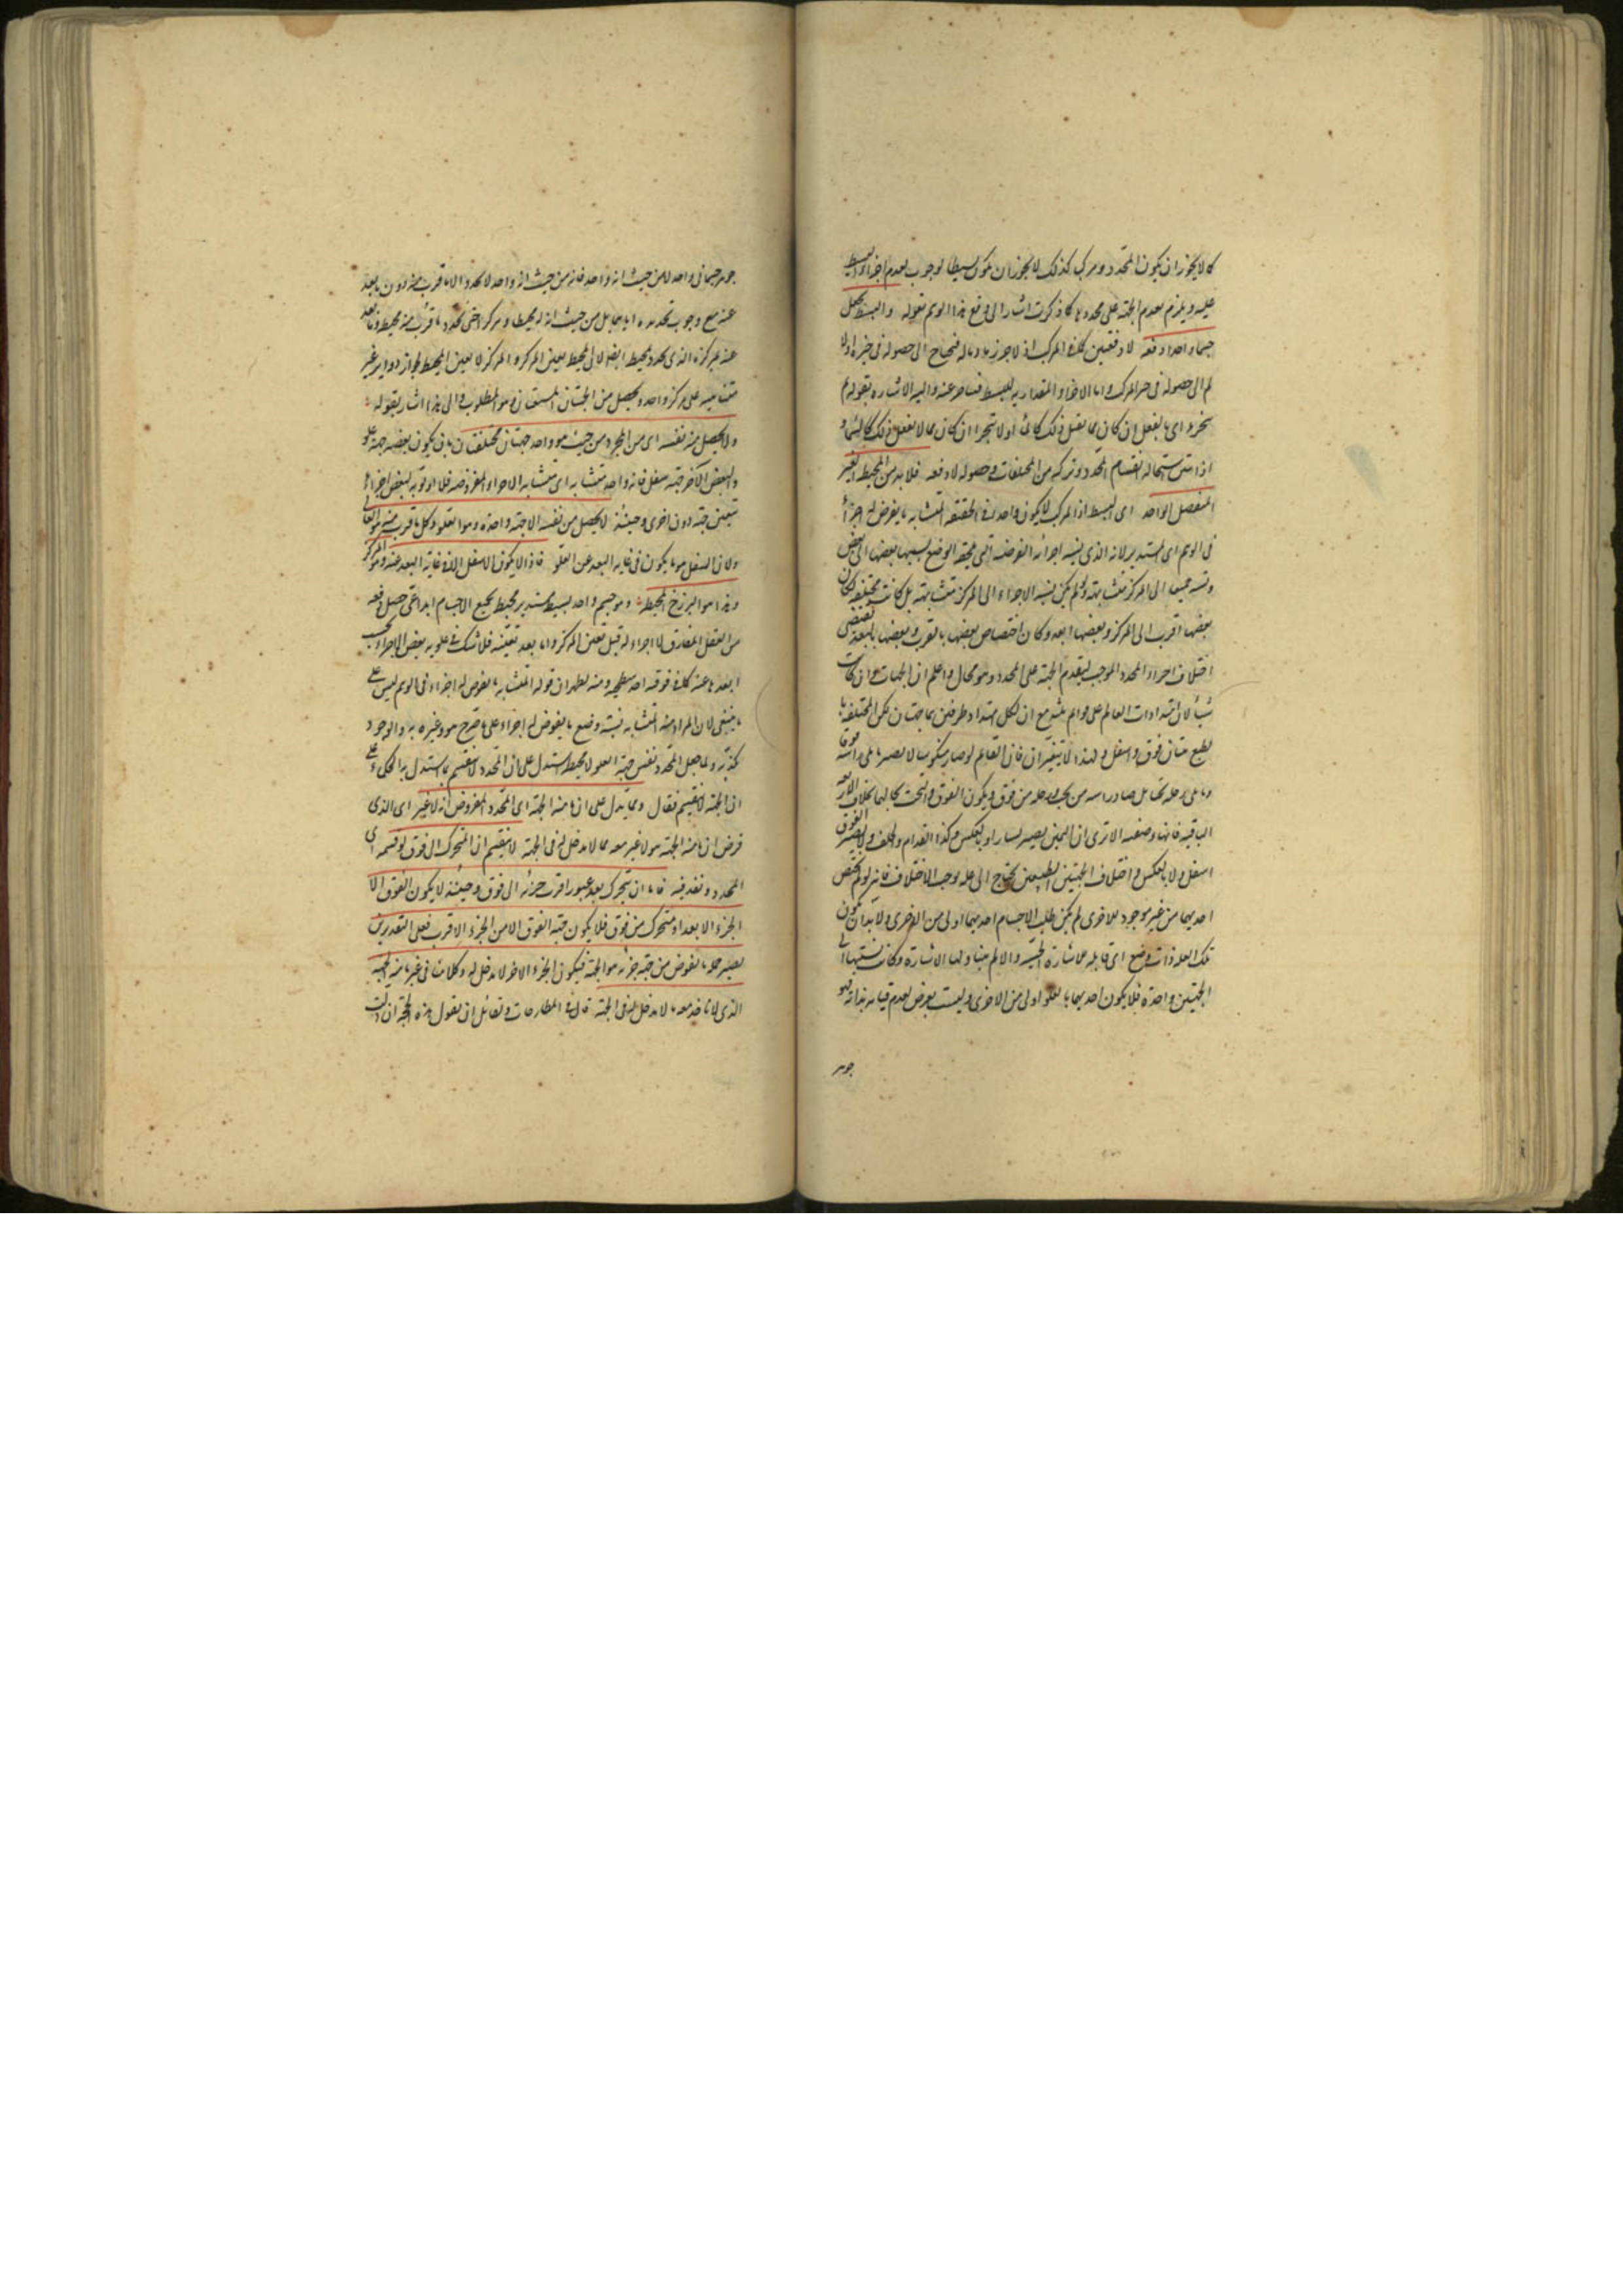 كما لا يجوز ان يكون المحدد مركب كذلك لا يجوز ان يكون بسيطا لوجوب تقدم اجزاء البسيط
عليه ويلزم تقدم الجهة على محددها كما ذكرت اشار الى دفع هذا الوهم بقوله والبسيط يحصل
جسما واحدا دفعة لا دفعتين كما فى المركب اذ لا جزء له فيحتاج الى حصوله فى حيزه اولا
ثم الى حصوله فى حيز المركب واما الاجزاء المقدارية للبسيط فمتأخرة عنه واليه الاشارة بقوله ثم
يتجزء اى بالفعل ان كان مما يقبل ذلك كالماء او لا يتجزا ان كان مما لا يقبل ذلك كالسماء
اذا تبين استحالة انقسام المحدد وتركبه من المختلفات وحصوله لا دفعة فلا بد من المحيط الغير
المنفصل الواحد اى البسيط اذ المركب لا يكون واحدا فى الحقيقة المتشابه ما يفرض له اجزاء
فى الوهم اى المستدير لانه الذى نسبة اجزائه الفرضية التى يلحقه الوضع بسببها بعضها الى بعض
ونسبة جميعها الى المركز متشابهة ولو لم يكن نسبة الاجزاء الى المركز متشابهة بل كانت مختلفة لكان
بعضها اقرب الى المركز وبعضها ابعد وكان اختصاص بعضها بالقرب وبعضها بالبعد يقتضى
اختلاف اجزاء المحدد الموجب لتقدم الجهة على المحدد وهو محال واعلم ان الجهات وان كانت
ستا لان امتدادات العالم على قوايم ثلث مع ان لكل امتداد طرفين هما جهتان لكن المختلفة بال
طبع منها فوق واسفل ولهذا لا يتغيران فان القائم لو صار منكوسا لا يصير ما يلى راسه فوقا
وما يلى رجله تحتا بل صار راسه من تحت ورجله من فوق ويكون الفوق والتحت بحالهما بخلاف الاربعة
الباقية فانها وضعية الا ترى ان اليمين يصير يسارا وبالعكس وكذا القدام والخلف ولا يصير الفوق
اسفل ولا بالعكس واختلاف الجهتين الطبيعتين يحتاج الى علة توجب الاختلاف فانه لو لم يختص
احديهما من غير موجود للاخرى لم يكن طلب الاجسام احديهما اولى من الاخرى ولا بد ان يكون
تلك العلة ذات وضع اى قابلة للاشارة الحسية والا لم يتناولها الاشارة وكانت نسبتها الى
الجهتين واحدة فلا يكون احديهما بالعلو اولى من الاخرى وليست بعرض لعدم قيامه بذاته فهو
جوهر
جوهر جسمانى واحد لا من حيث انه واحد فانه من حيث انه واحد لا يحدد الا ما قرب منه دون ما بعد
عنه مع وجوب تحديده اياهما بل من حيث انه له محيط ومركز اختى يحدد ما قرب منه بمحيطه وما بعد
عنه بمركزه الذى يحدد بمحيطه ايضا لان المحيط يعين المركز والمركز لا يعين المحيط لجواز دواير غير
متناهية على مركز واحد ويحصل من الجهتان المستقان وهو المطلوب والى هذا اشار بقوله
ولا يحصل منه نفسه اى من المحدد من حيث هو واحد جهتان مختلفتان بان يكون بعضه جهة علو
والبعض الآخر جهة سفل فانه واحد متشابه اى متشابه الاجزاء المفروضة فلا اولوية لبعض اجزائه
بتعين جهة دون اخرى وحينئذ لا يحصل من نفسه الا جهة واحدة وهو العلو وكل ما قرب منه هو العالى
ولان السفل هو ما يكون فى غاية البعد عن العلو فاذا لا يكون الاسفل الا فى غاية البعد عنه وهو المركز
وهذا هو البرزخ المحيط وهو جسم واحد بسيط مستدير محيط بجميع الاجسام ابداعى حصل دفعة
من العقل المفارق لا اجزاء له قبل تعين المركز واما بعد تعينه فلا شك فى علوية بعض الاجزاء بحسب
ابعدها عنه كما فى فوقية احد سطحيه ومنه يظهر ان قوله المتشابه ما يفرض له اجزاء فى الوهم ليس على
ما ينبغى لان المراد منه المتشابه نسبة وضع ما يفرض له اجزاء على ما صرح هو وغيره به والوجود
كذبه ولما جعل المحدد نفس جهة العلو لا محيطه استدل على ان المحدد لا ينقسم بما استدل به الحكماء على
ان الجهة لا تنقسم فقال ومما يدل على ان ما منه الجهة اى المحدد المفروض انه لا غير اى الذى
فرض ان ما منه الجهة هو لا غير معه مما لا مدخل له فى الجهة لا ينقسم ان المتحرك الى فوق لو قسمه اى
المحدد ونفذ فيه فاما ان يتحرك بعد عبور اقرب جزئه الى فوق وحينئذ لا يكون الفوق الا
الجزء الابعد او متحرك من فوق فلا يكون جهة الفوق الا من الجزء الاقرب فعلى التقديرين
يصير حد ما يفرض من جهة جزئه هو الجهة فيكون الجزء الآخر لا مدخل له وكلامنا فى غير ما منه الجهة
الذى لا ناخذ معه ما لا مدخل له فى الجهة قال فى المطارحات ولقائل ان يقول هذه الحجة ان دلت